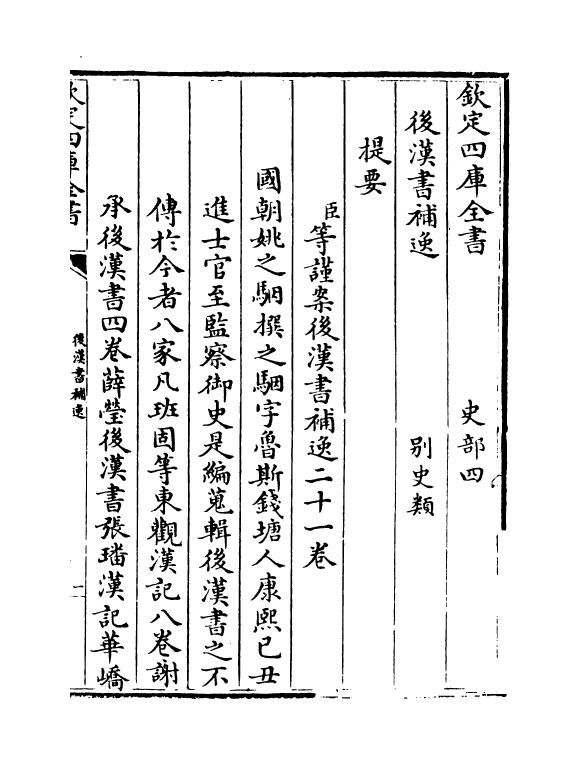 欽定四庫全書　　　史部四
後漢書補逸　　　別史類
提要
臣等謹案後漢書補逸二十一卷
國朝姚之駰撰之駰字魯斯錢塘人康熙已丑
進士官至監察御史是編蒐輯後漢書之不
傳於今者八家凡班固等東觀漢記八卷謝
承後漢書四卷薛瑩後漢書張璠漢記華嶠
欽定四庫全書
後漢書補逸
一